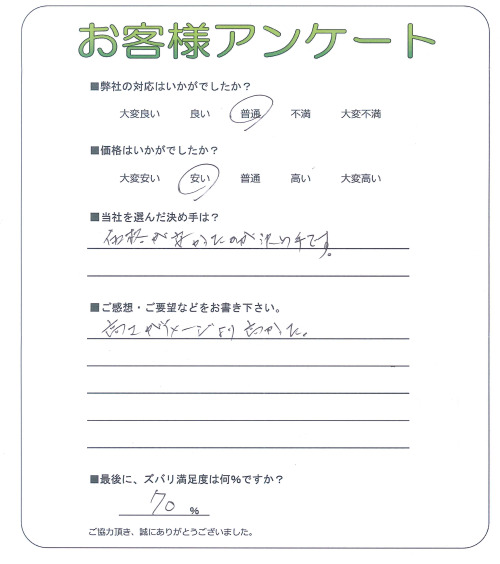 お客様アンケート
■弊社の対応はいかがでしたか？
大変良い 良い 普通 不満 大変不満
■価格はいかがでしたか？
大変安い 安い 普通 高い 大変高い
■当社を選んだ決め手は？
価格が安かったのが決め手です。
■ご感想・ご要望などをお書き下さい。
がイメージより かった。
■最後に、ズバリ満足度は何%ですか？
70 %
ご協力頂き、誠にありがとうございました。